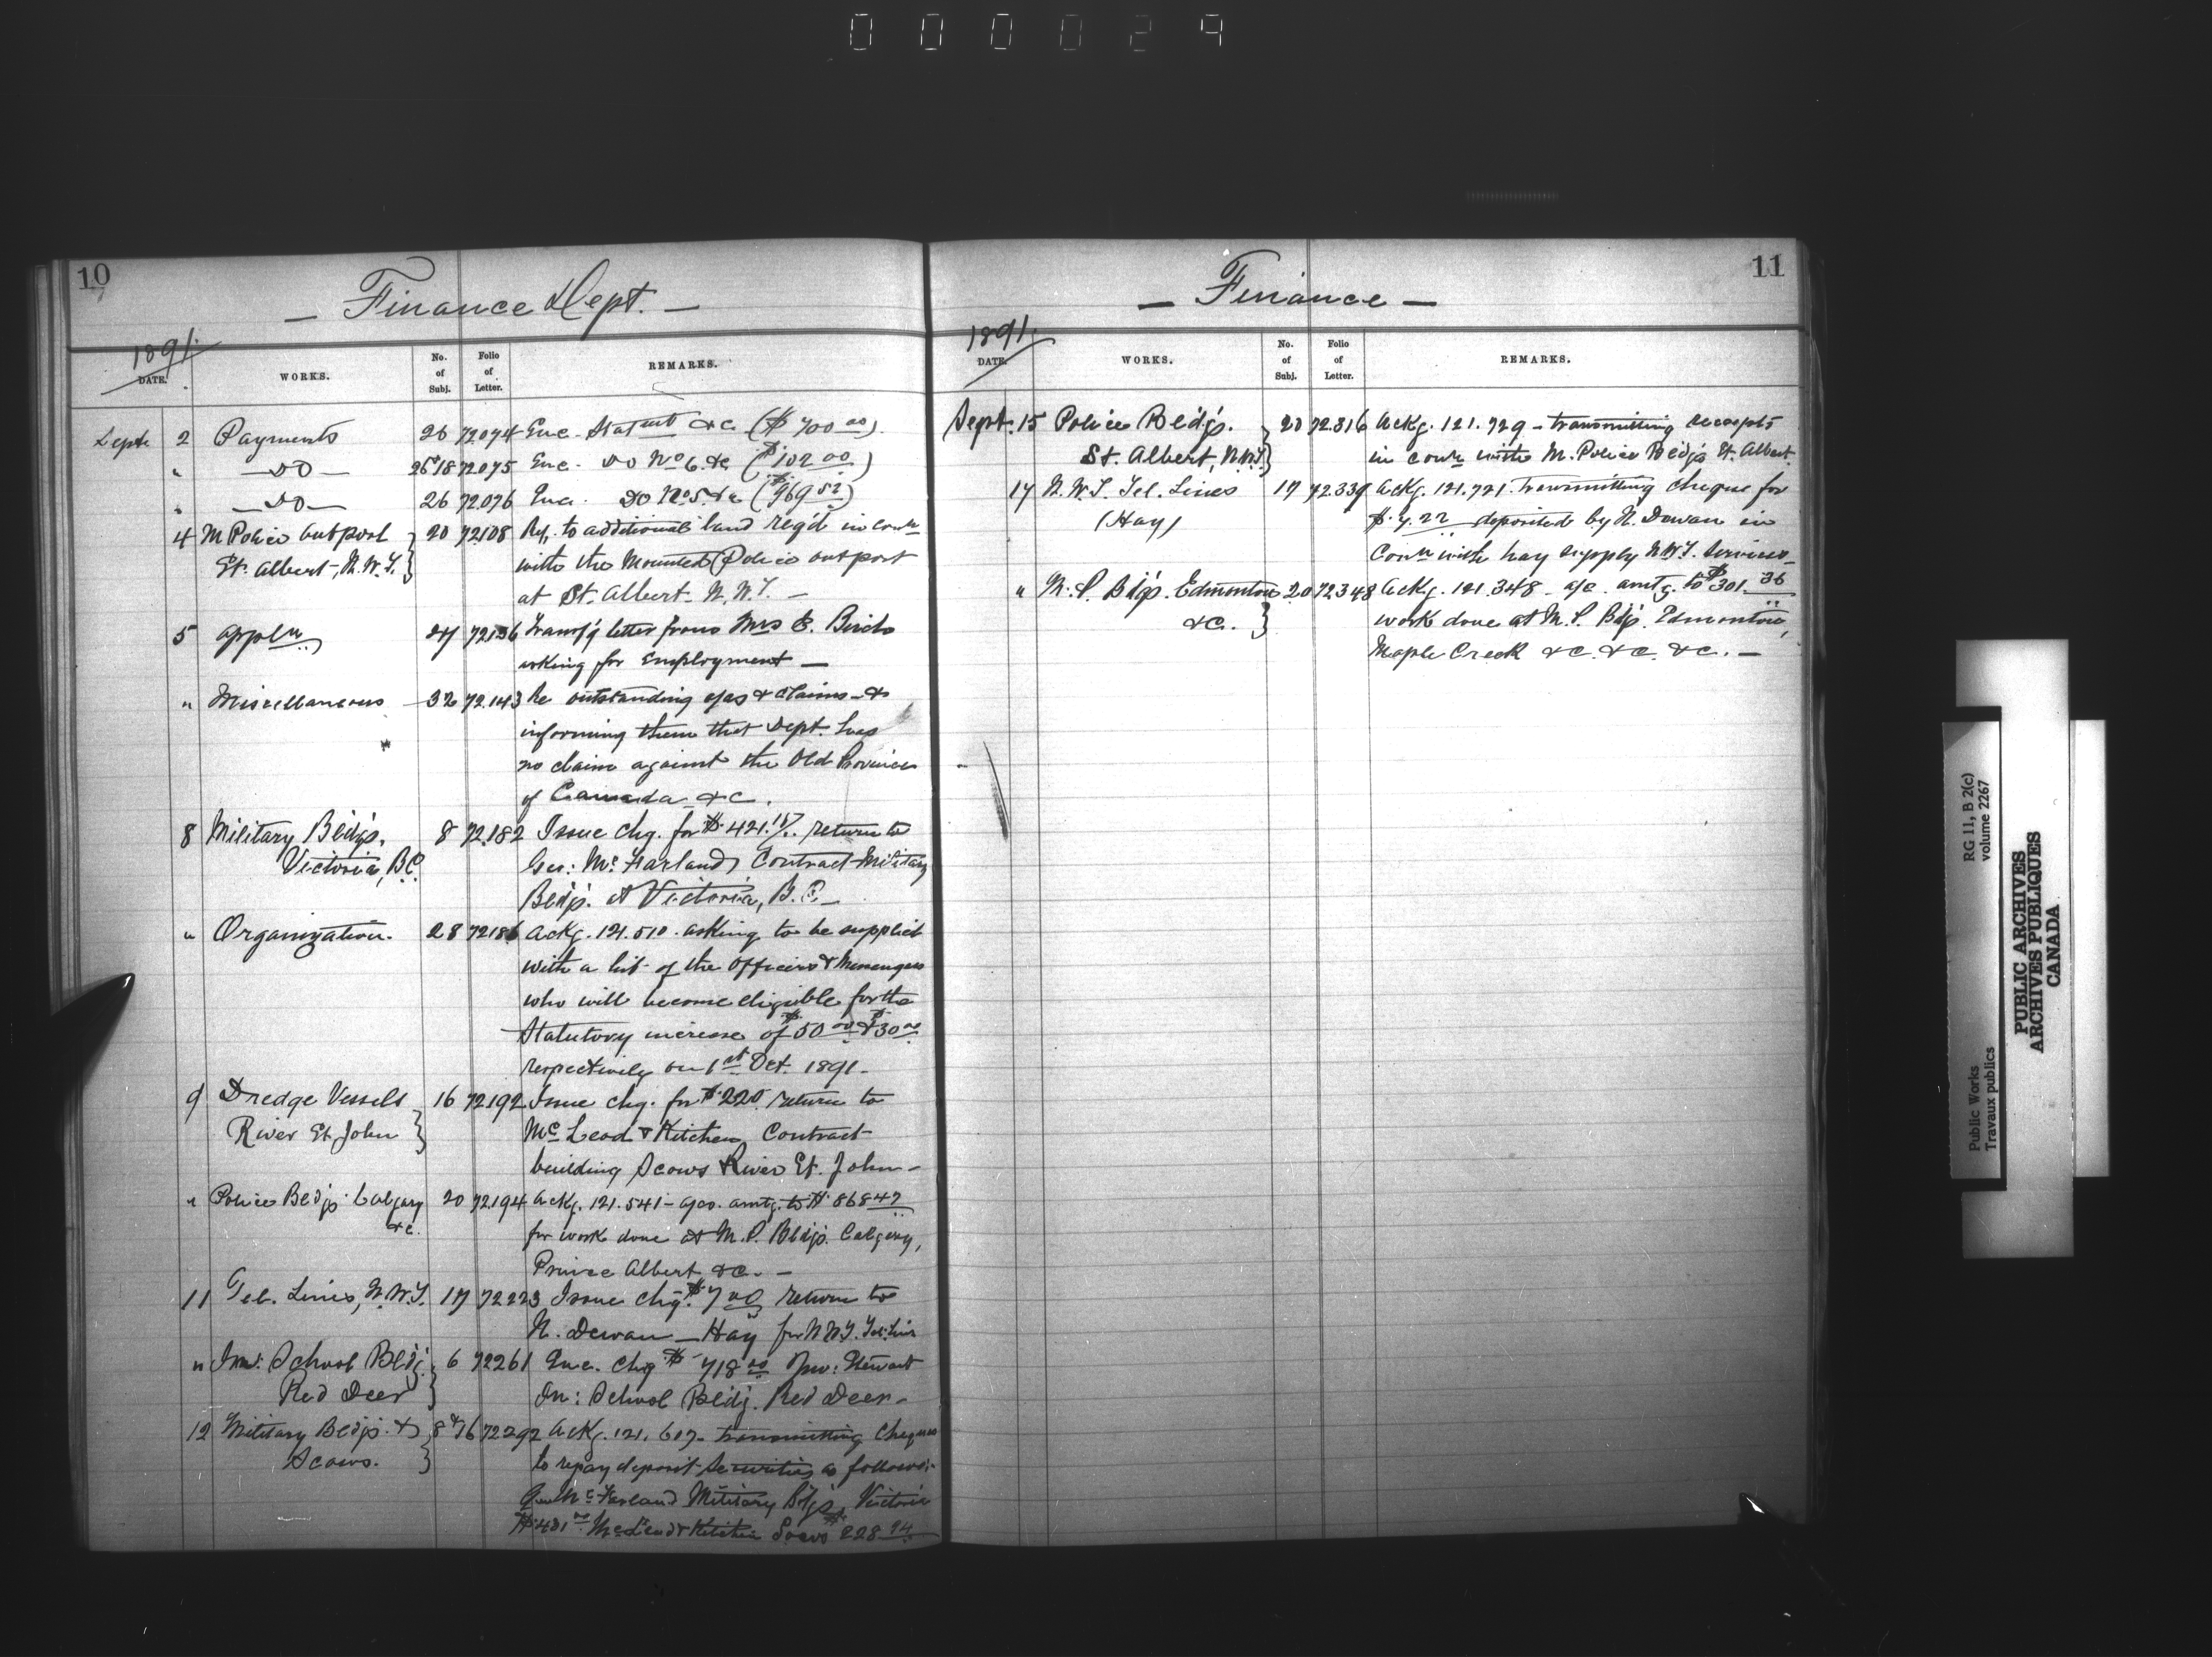 000029
10
— Finance Dept. —
1891.
DATE. WORKS. No. of Subj. Folio of Letter. REMARKS.
Septr 2 Payments 26 72074 Enc. Statmt &c ($700 00)
" — DO — 26&18 72075 Enc. DO No 6 &c ($102 00)
" — DO — 26 72076 Enc. DO No 5 &c ($969 52)
4 M Police Outpost 20 72108 Ref. to additional land req'd in conn
St. Albert, N.W.T. with the Mounted Police outpost
at St. Albert. N.W.T. —
5 Appln 27 72136 Transf'g letter from Mrs E. Birch
asking for Employment —
" Miscellaneous 32 72.143 Re outstanding a/cs & claims — &
informing them that Dept. has
no claim against the Old Province
of Canada &c.
8 Military Bldgs. 8 72.182 Issue chq. for $421. return to
Victoria, B.C. Geo: McFarland Contract Military
Bldgs. at Victoria, B.C. —
" Organization. 28 72186 Ackg. 121.510. asking to be supplied
with a list of the officers & Messengers
who will become eligible for the
Statutory increase of $50 00 & $30 00
respectively on 1st Oct. 1891 —
9 Dredge Vessels 16 72192 Issue chq. for $220. return to
River St. John McLeod & Kitchen Contract
building Scows River St. John —
" Police Bldgs Calgary 20 72194 Ackg. 121.541 — a/cs. amtg. to $868 47
&c. for work done at M.P. Bldgs. Calgary,
Prince Albert &c. —
11 Tel. Lines, N.W.T. 17 72223 Issue chq. $7 00 return to
N. Dewan — Hay for N.W.T. Tel. Lines
" Ind: School Bldg. 6 72261 Enc. Chq $ 718 00 Jno: Stewart
Red Deer In: School Bldg. Red Deer —
12 Military Bldgs. & 8&16 72292 Ackg. 121.617 — transmitting Cheques
Scows. to repay deposit Securities as follows:—
Geo McFarland Military Bdgs, Victoria
McLeod & Kitchen Scows $228 94
11
— Finance —
1891.
DATE. WORKS. No. of Subj. Folio of Letter. REMARKS.
Sept. 15 Police Bldgs. 20 72.316 Ackg. 121.729 — transmitting receipts
St. Albert, N.W.T. in conn with M. Police Bldgs St. Albert.
17 N.W.T. Tel. Lines 17 72.339 Ackg. 121.721. transmitting cheque for
(Hay) $7.22 deposited by N. Dewan in
Conn with hay supply N.W.T. Services —
" M.P. B'lgs. Edmonton 20 72348 Ackg. 121.348 — a/c. amtg. to $301. 36
&c. work done at M.P. Bdgs. Edmonton,
Maple Creek &c. &c. &c. —
RG 11, B 2(c)
volume 2267
Public Works
Travaux publics
PUBLIC ARCHIVES
ARCHIVES PUBLIQUES
CANADA